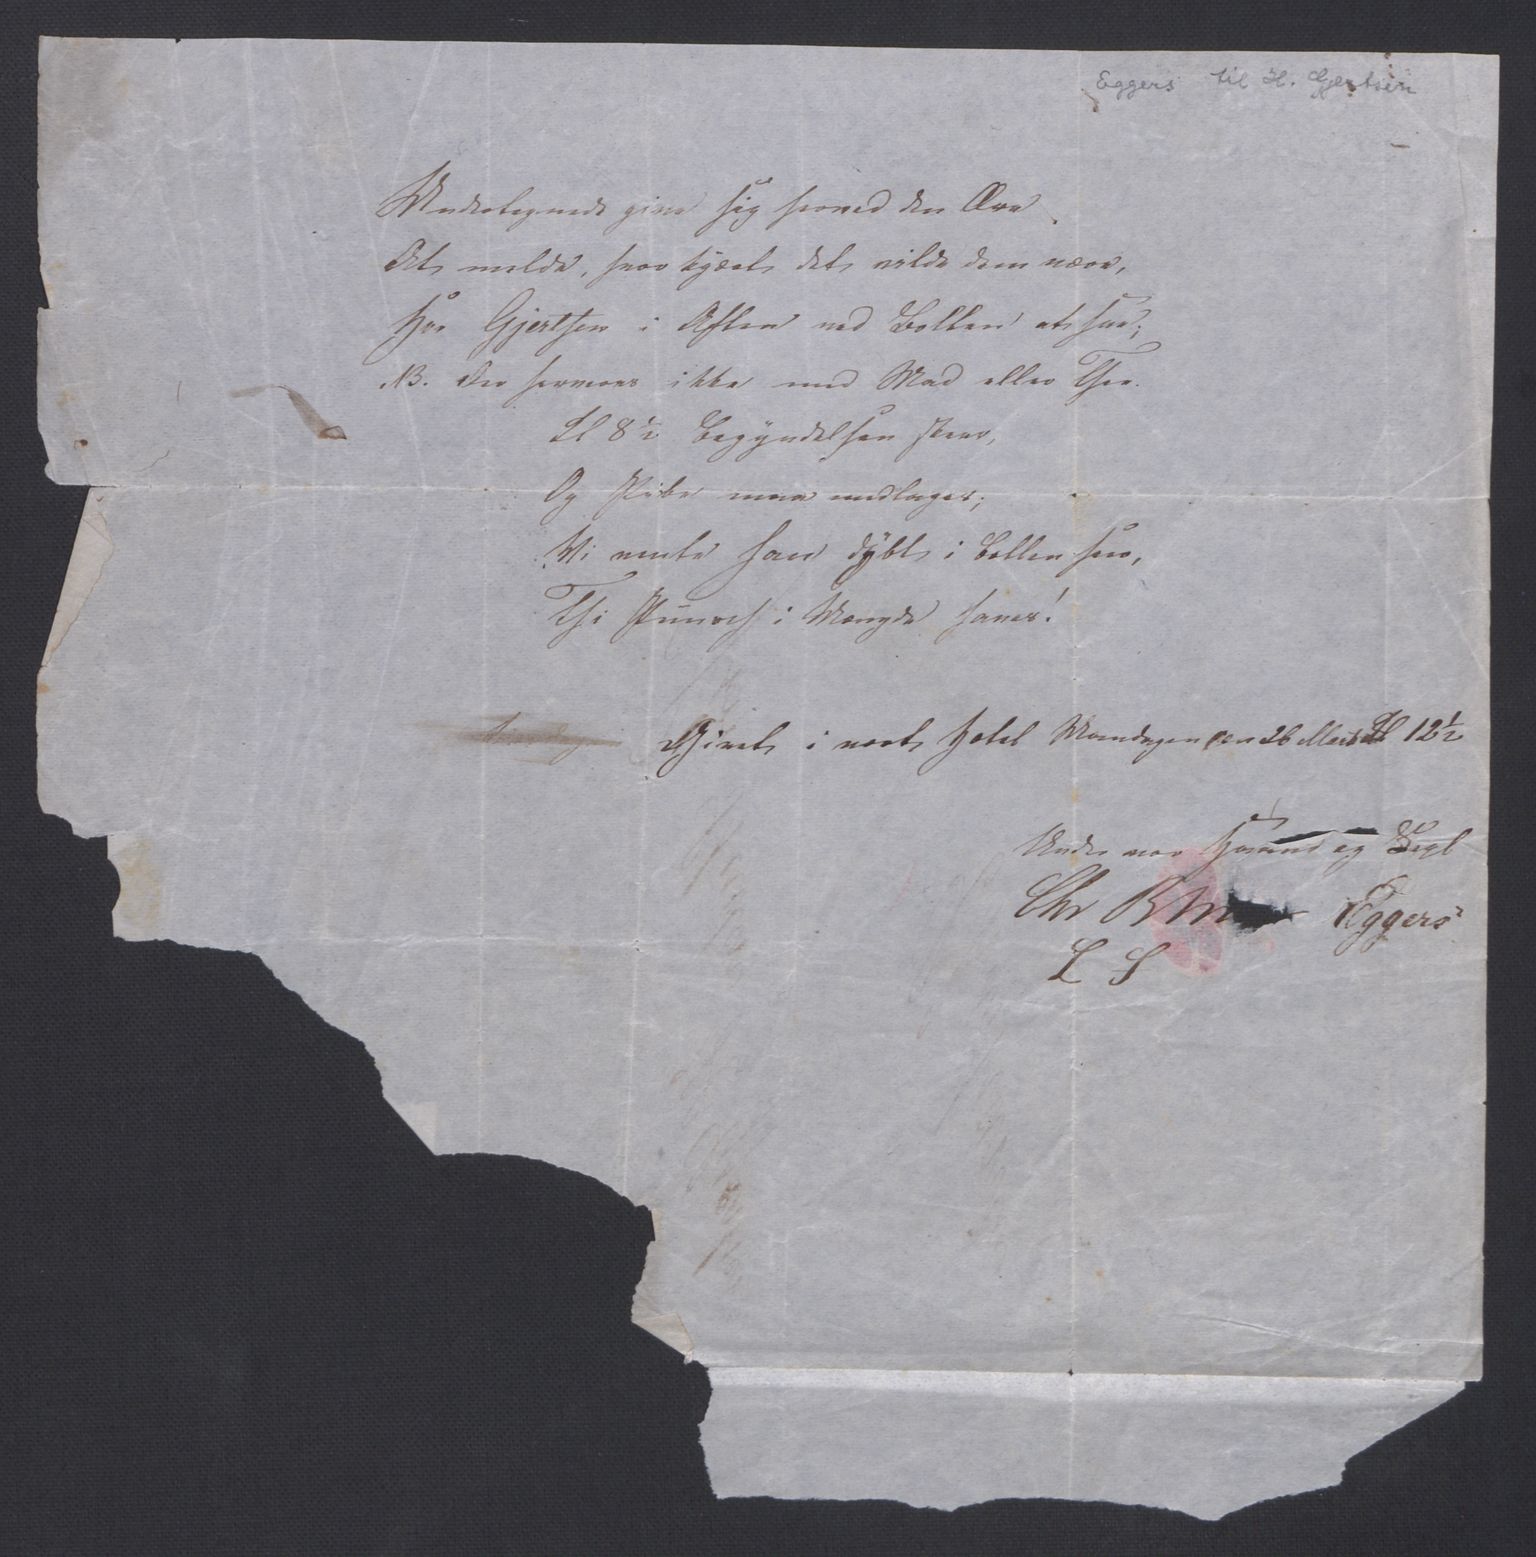 Eggers til H. Gjertsen
Undertegnede give sig herved den Ære
At melde, hvor kjært det vilde dem være,
Hr Gjertsen i Aften ved Bollen at see;
NB. Der serveres ikke med Mad eller Thee.
Kl 8½ Begyndelsen skeer,
Og Pibe maa medtages;
Vi vente han dybt i Bollen seer,
Thi Punsch i Mængde haves!
Givet i vort Hotel Mandagen den 26 Marts Kl 12½
Under vor Haand og Segl
Chr B Eggers
L S